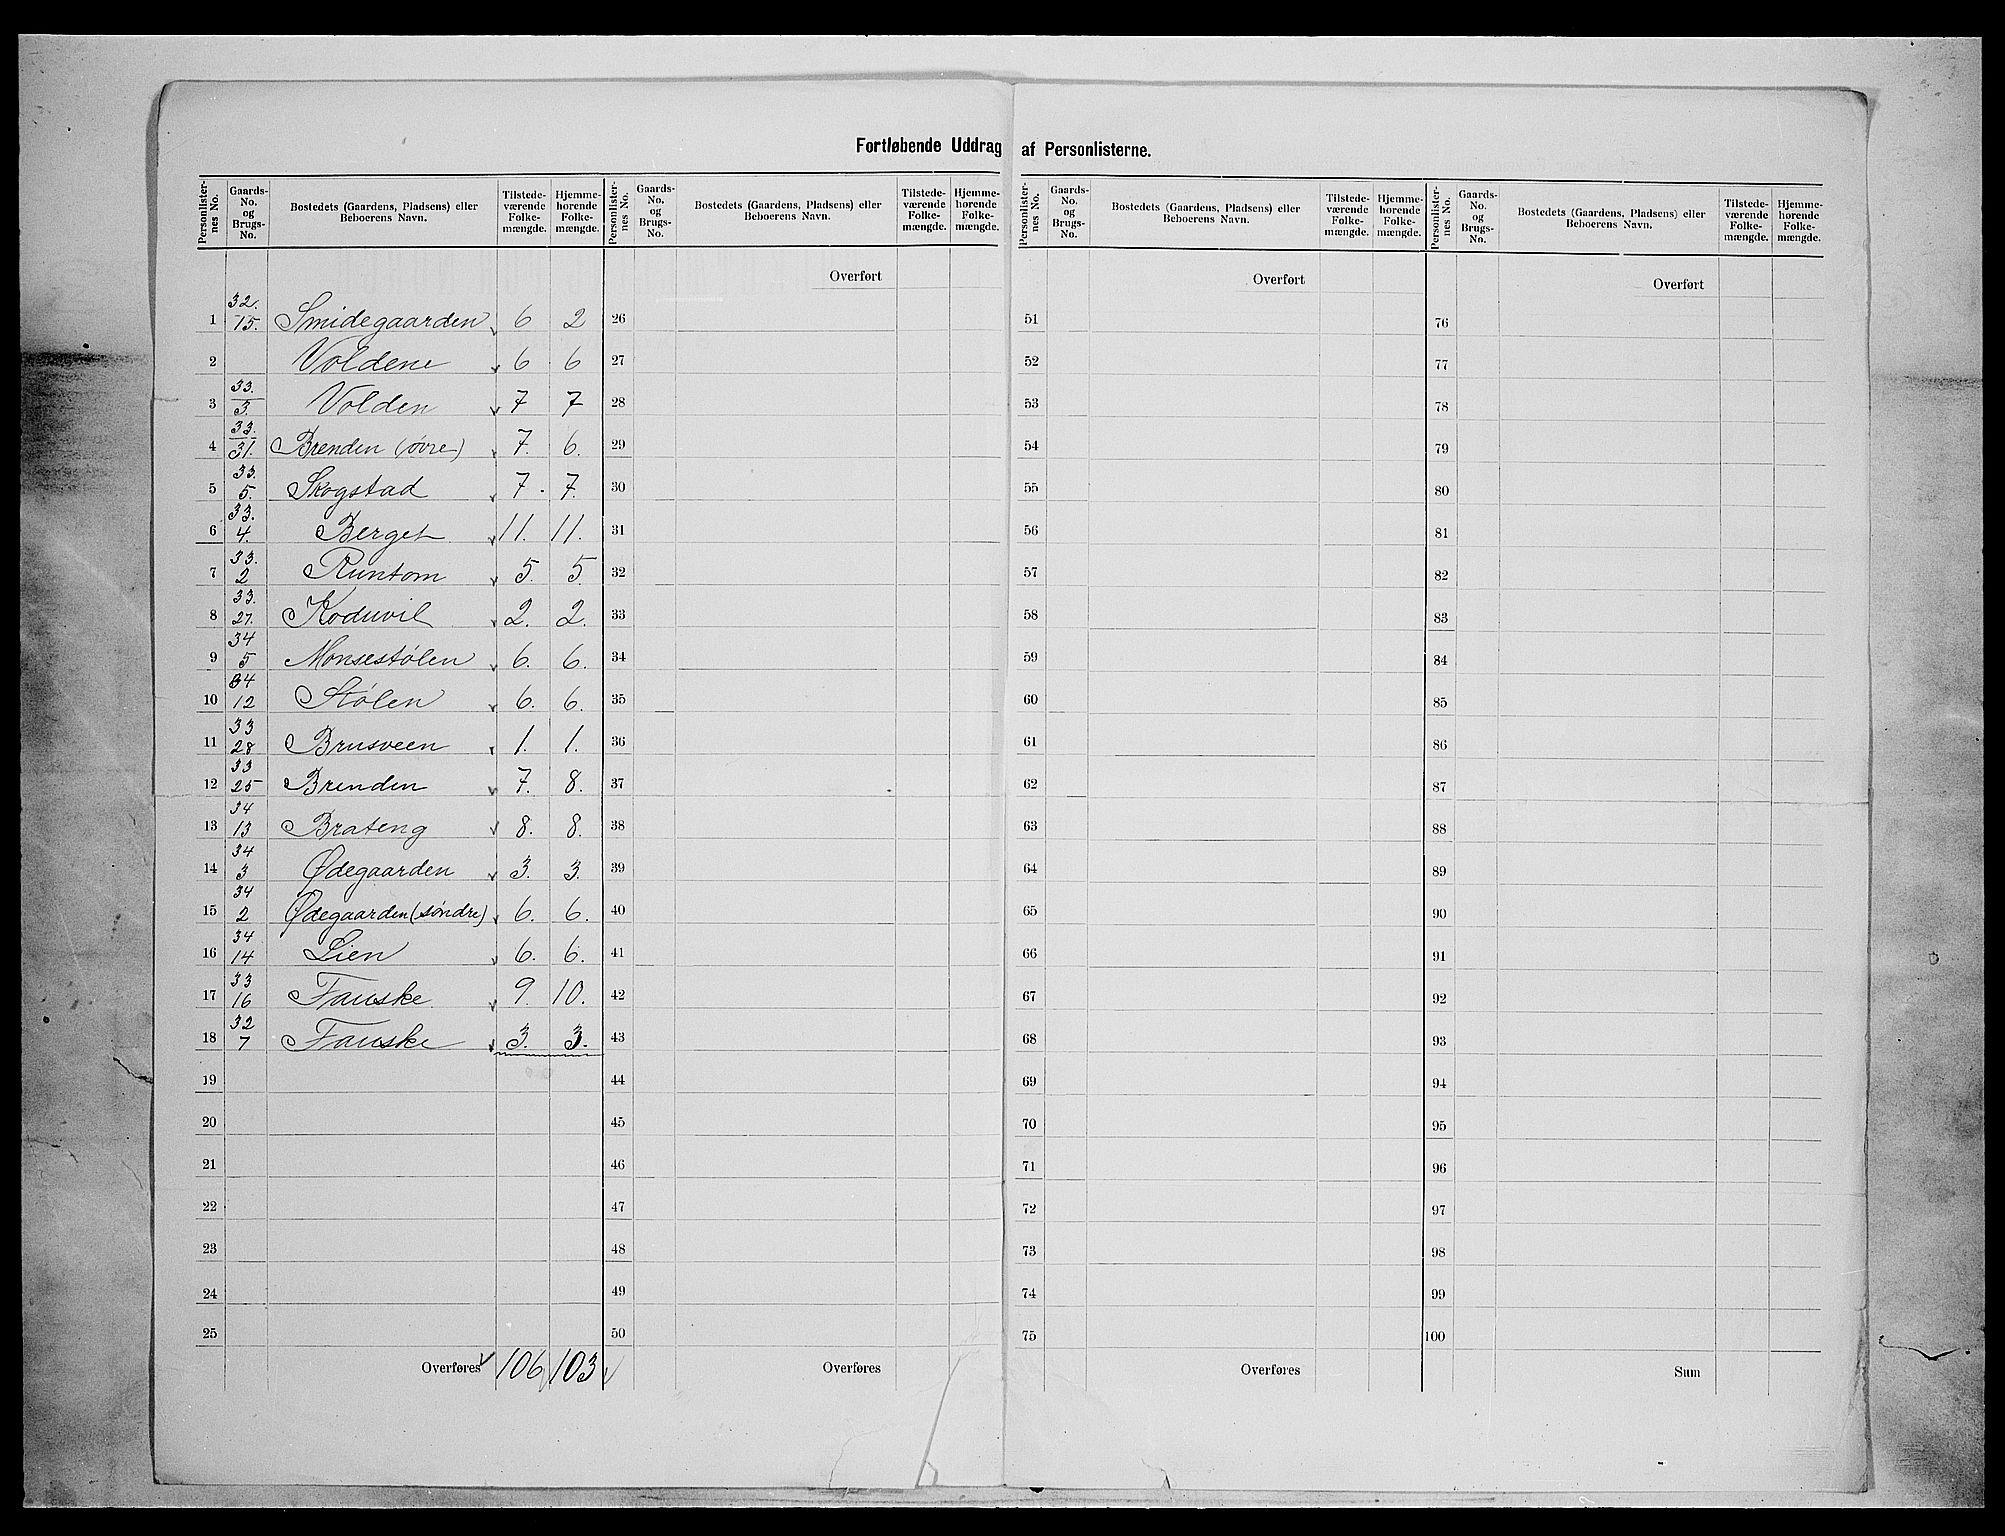 Fortløbende Uddrag af Personlisterne.
Personlister-nes No. Gaards-No. og Brugs-No. Bostedets (Gaardens, Pladsens) eller Beboerens Navn. Tilstede-værende Folke-mængde. Hjemme-hørende Folke-mængde.
Personlister-nes No. Gaards-No. og Brugs-No. Bostedets (Gaardens, Pladsens) eller Beboerens Navn. Tilstede-værende Folke-mængde. Hjemme-hørende Folke-mængde.
Personlister-nes No. Gaards-No. og Brugs-No. Bostedets (Gaardens, Pladsens) eller Beboerens Navn. Tilstede-værende Folke-mængde. Hjemme-hørende Folke-mængde.
Personlister-nes No. Gaards-No. og Brugs-No. Bostedets (Gaardens, Pladsens) eller Beboerens Navn. Tilstede-værende Folke-mængde. Hjemme-hørende Folke-mængde.
Overført Overført Overført
1 32./15. Smidegaarden 6 2 26 51 76
2 Voldene 6 6 27 52 77
3 33./3. Volden 7 7 28 53 78
4 33./31. Brenden (øvre) 7. 6. 29 54 79
5 33./5. Skogstad 7. 7. 30 55 80
6 33./4. Berget 11. 11. 31 56 81
7 33./2 Runtom 5. 5. 32 57 82
8 33./27. Koduvil 2. 2. 33 58 83
9 34/5 Monsestølen 6. 6. 34 59 84
10 34/12 Stølen 6. 6. 35 60 85
11 33/28 Brusveen 1. 1. 36 61 86
12 33/25 Brenden 7. 8. 37 62 87
13 34/13 Brateng 8. 8. 38 63 88
14 34/3 Ødegaarden 3. 3. 39 64 89
15 34/2 Ødegaarden (søndre) 6. 6. 40 65 90
16 34/14 Lien 6. 6. 41 66 91
17 33/16 Fauske. 9. 10. 42 67 92
18 32/7 Fauske 3. 3. 43 68 93
19 44 69 94
20 45 70 95
21 46 71 96
22 47 72 97
23 48 73 98
24 49 74 99
25 50 75 100
Overføres 106 103 Overføres Overføres Sum